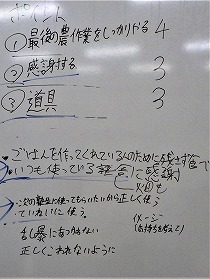 ポイント
① 最後の農作業をしっかりやる 4
② 感謝する 3
③ 道具 3
・ごはんを作ってくれている人のために残さず食べ
・いつも使っている
感謝
・次の学生に使ってもらいたいから正しく使う
ていねいに使う。
乱暴にあつかわない
正しくこわれないように
イメージ
(気持ちを考えて)